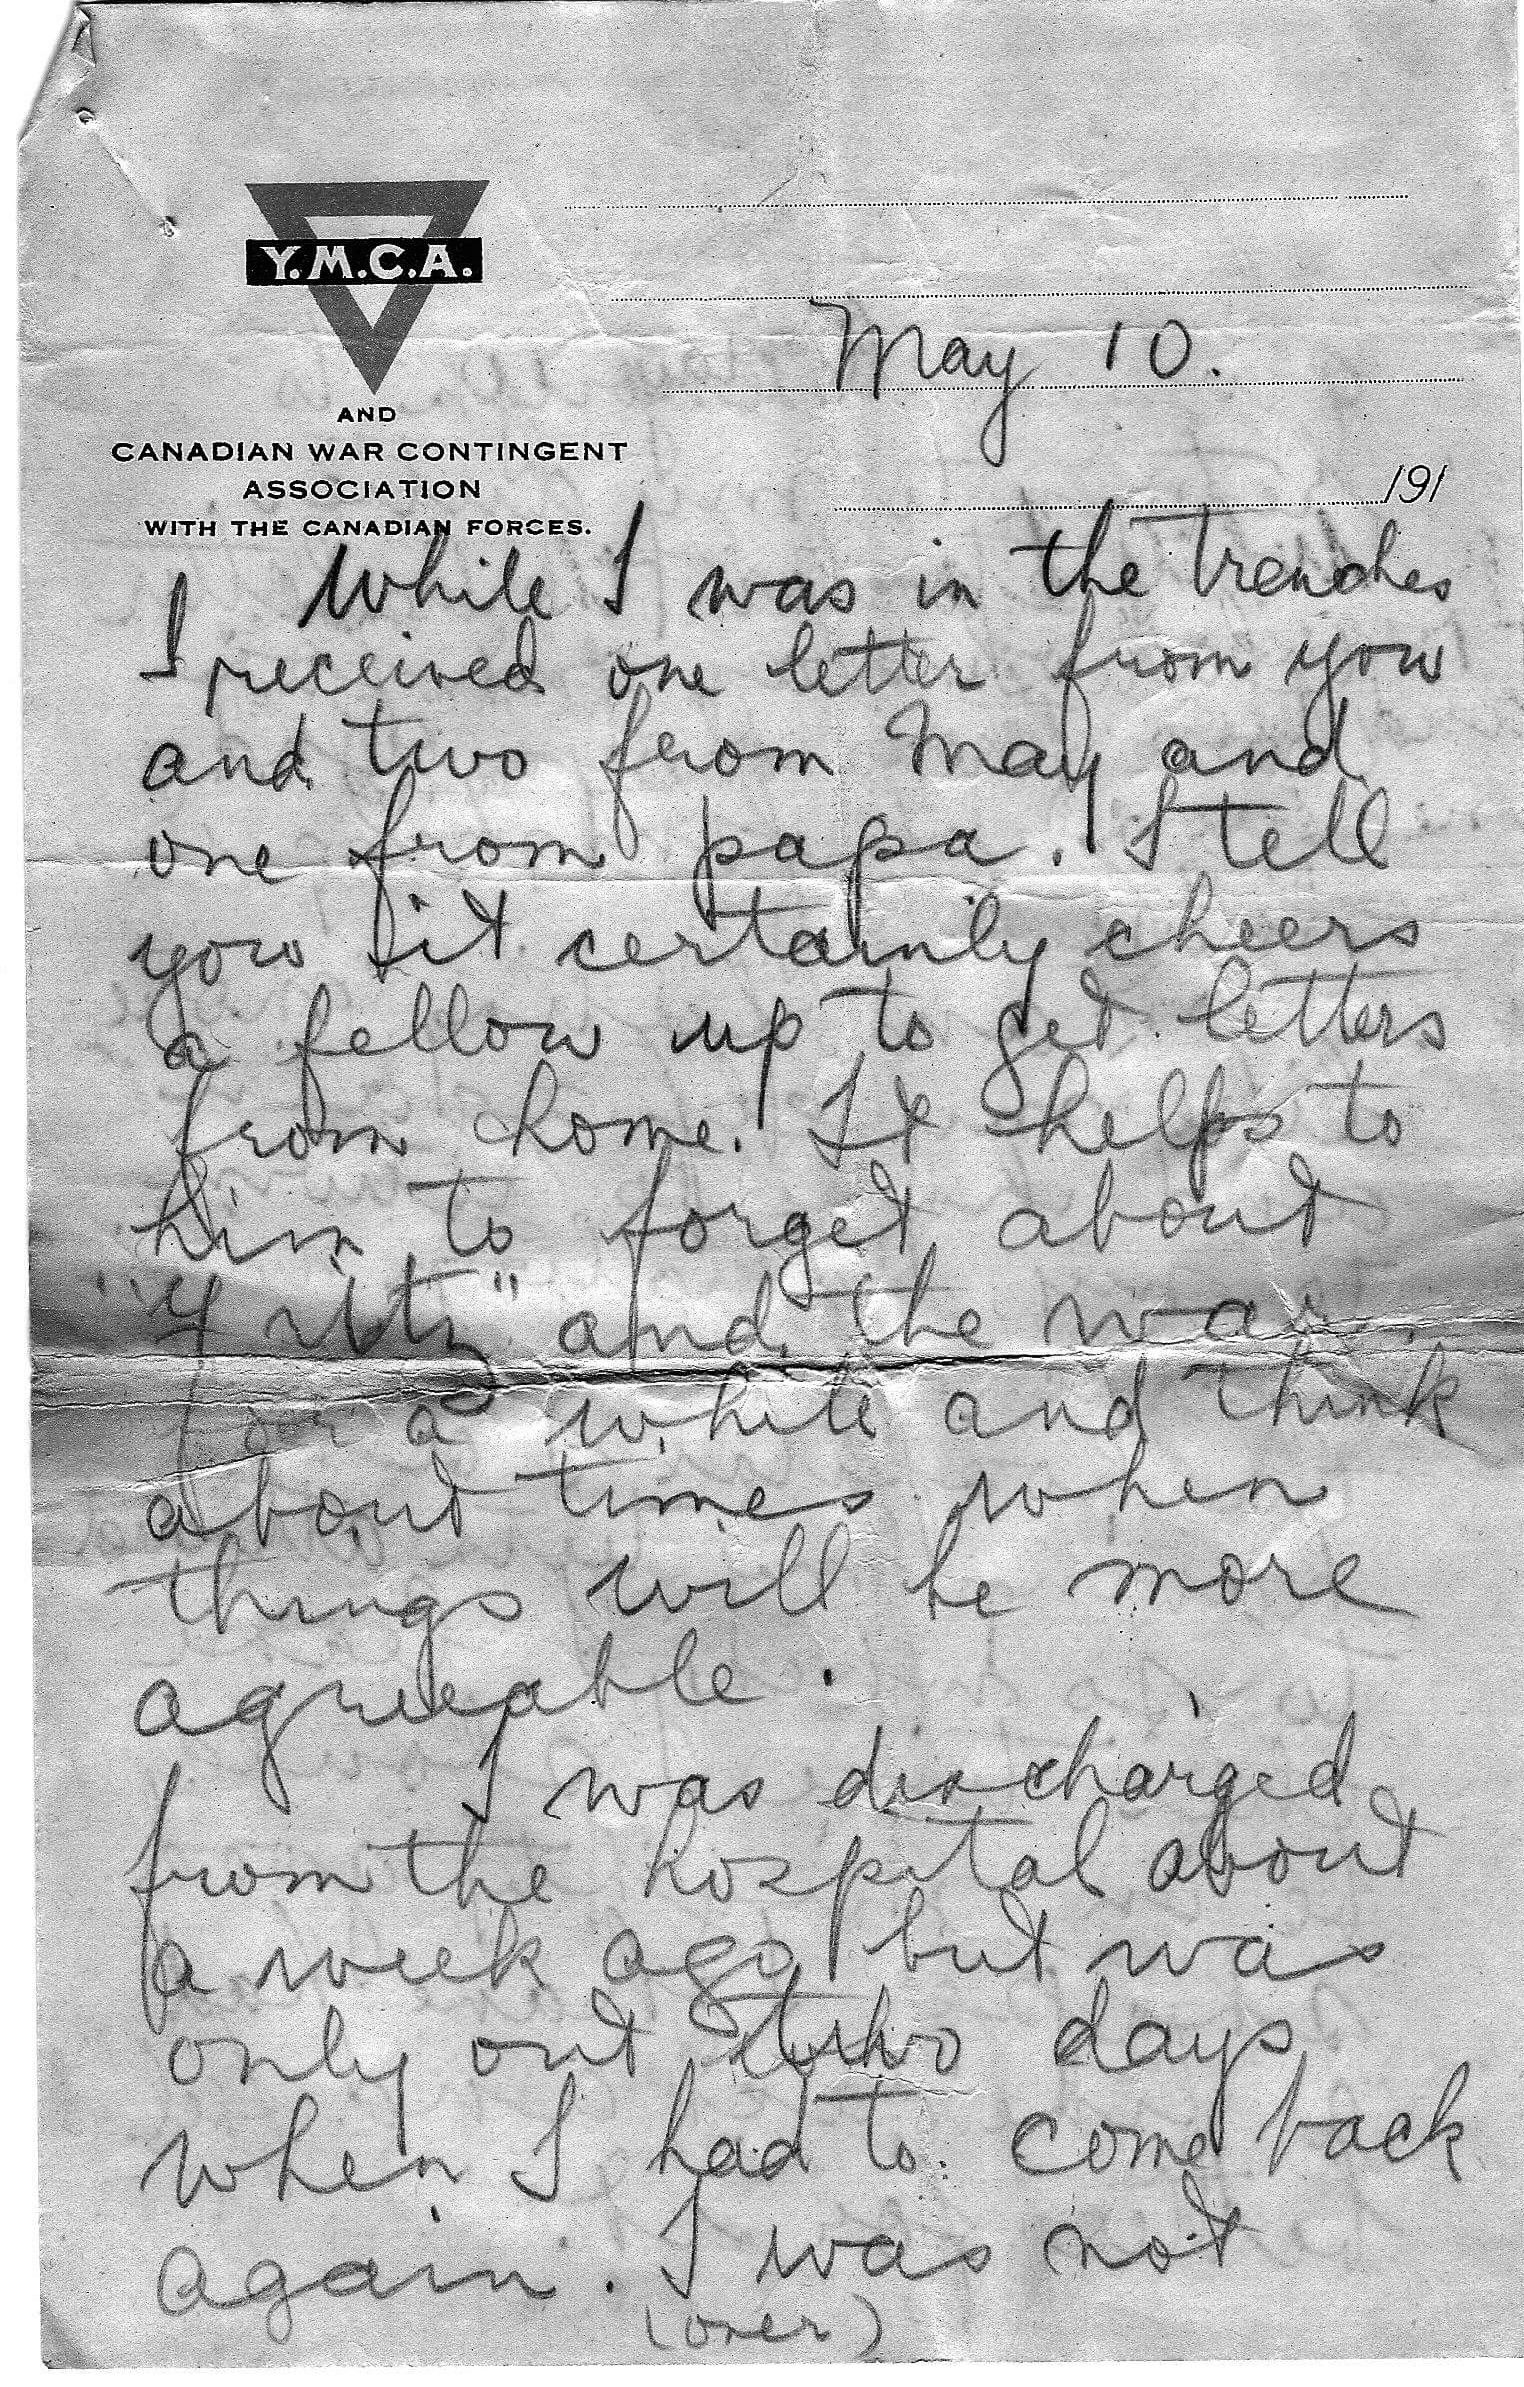 Y.M.C.A.
AND
CANADIAN WAR CONTINGENT
ASSOCIATION
WITH THE CANADIAN FORCES.
May 10.
191
I While I was in the trenches
I received one letter from you
and two from May and
one from papa. I tell
you it certainly cheers
a fellow up to get letters
from home. It helps to
him to forget about
"Fritz" and the war
for a while and think
about times when
things will be more
agreeable.
I was discharged
from the hospital about
a week ago but was
only out two days
when I had to come back
again. I was not
(over)